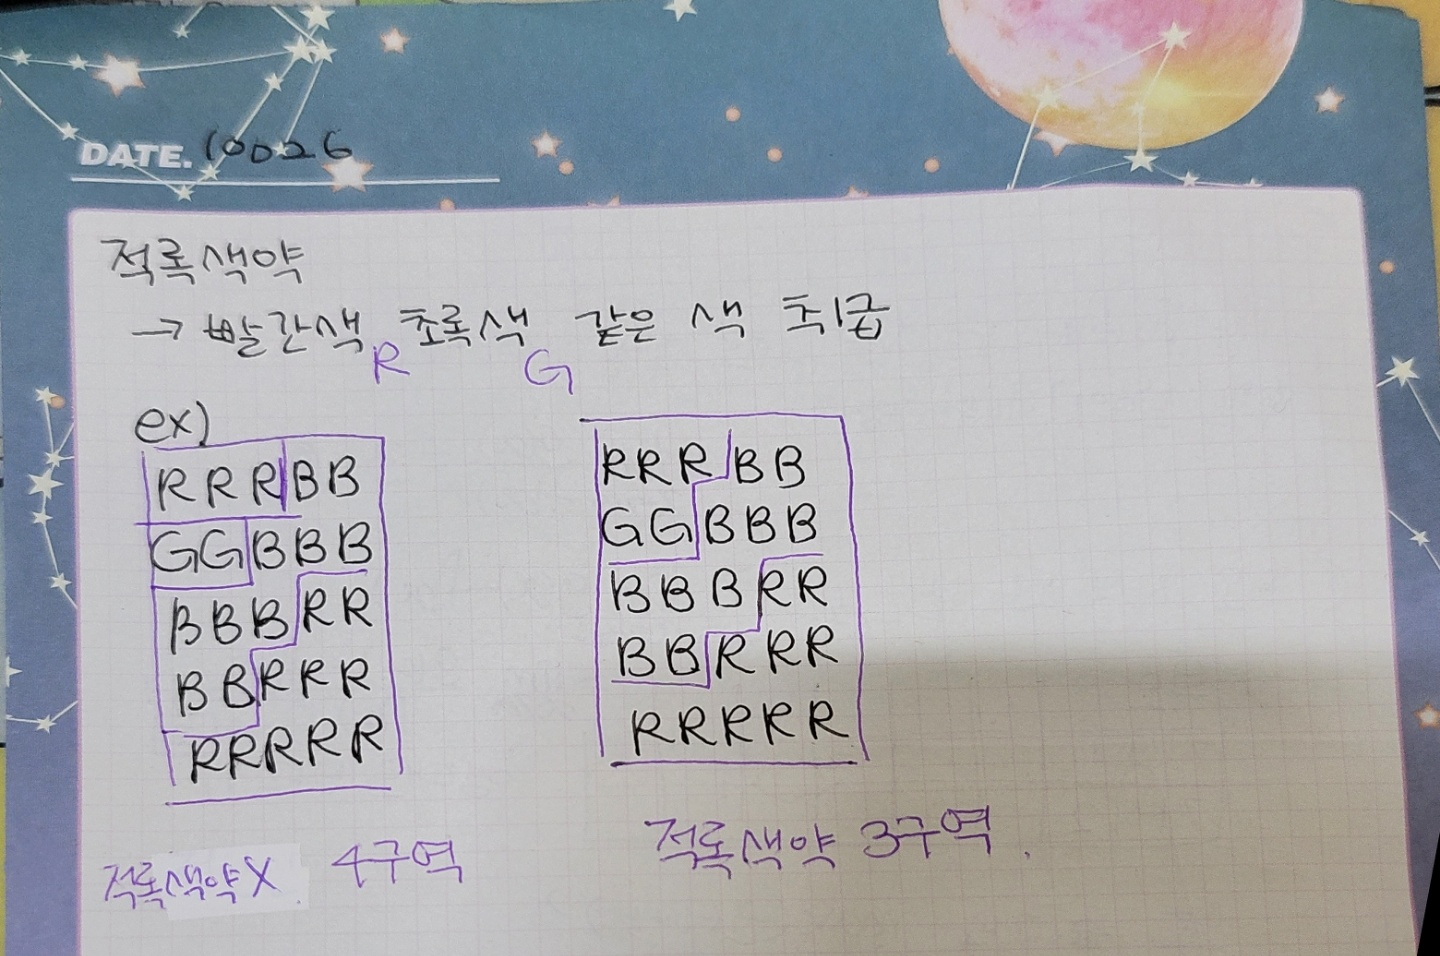 DATE. 10026
적록색약
→ 빨간색 초록색 같은 색 취급
R G
ex)
RRRBB
GGBBB
BBBRR
BBRRR
RRRRR
적록색약X 4구역
RRRBB
GGBBB
BBBRR
BBRRR
RRRRR
적록색약 3구역.